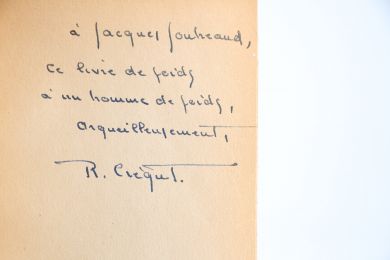 à Jacques Jouheaud,
Ce livre de poids
à un homme de poids,
orgueilleusement,
R. Crégut.